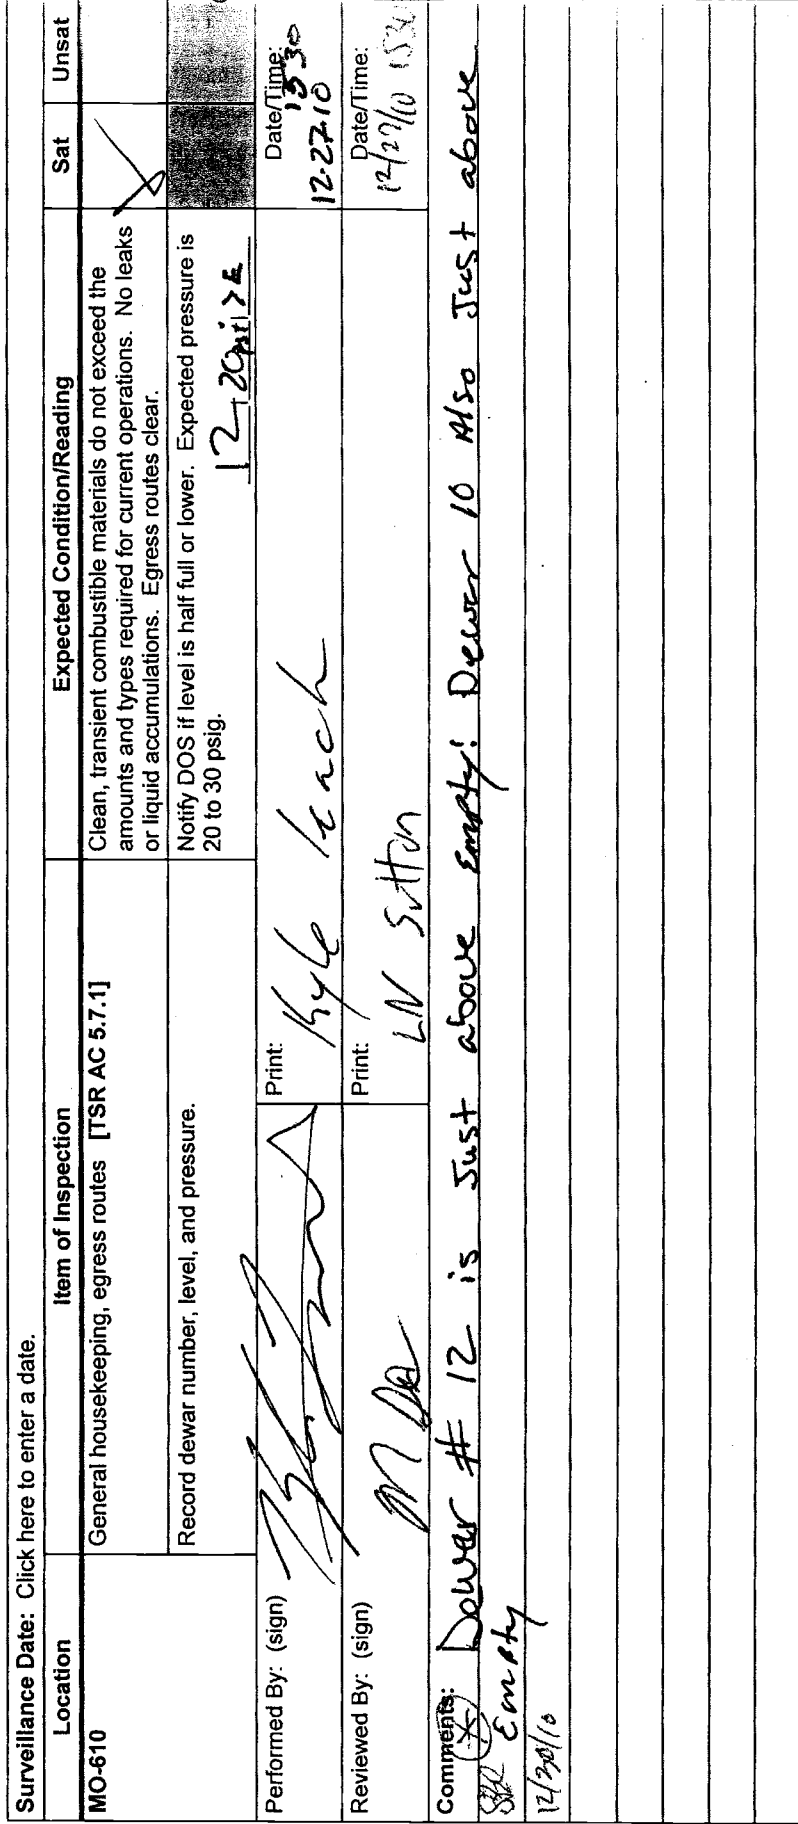 Surveillance Date: Click here to enter a date.
Location
Item of Inspection
Expected Condition/Reading
Sat
Unsat
MO-610
General housekeeping, egress routes [TSR AC 5.7.1]
Clean, transient combustible materials do not exceed the
amounts and types required for current operations. No leaks
or liquid accumulations. Egress routes clear.
Record dewar number, level, and pressure.
Notify DOS if level is half full or lower. Expected pressure is
20 to 30 psig.
12, 20psi
Performed By: (sign)
Print: Kyle Leach
Date/Time:
1530
12-27-10
Reviewed By: (sign)
Print: LN Sutton
Date/Time:
12/27/10 1530
Comments: Dewar # 12 is Just above Empty! Dewar 10 Also Just above
Empty
12/30/10